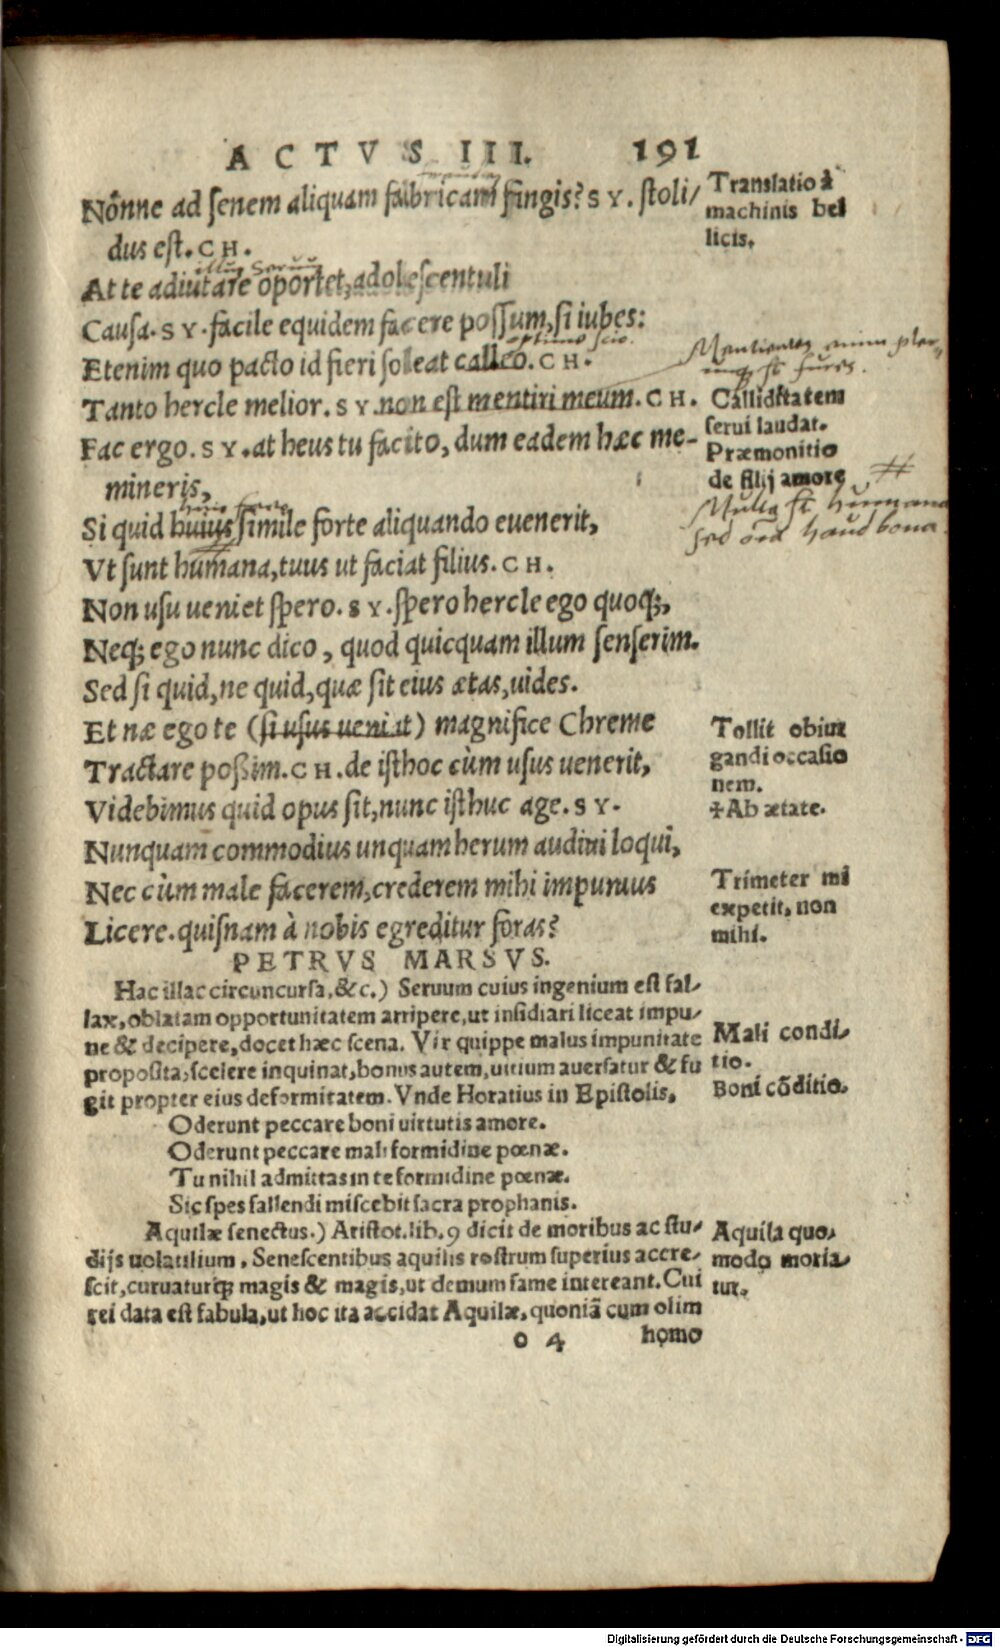 ACTVS III. 191
Nónne ad senem aliquam fabricam fingis? SY. stoli/
dus est. CH.
illuc seruum
At te adiutare oportet, adolescentuli
Causa. SY. facile equidem facere possum, si iubes:
optime scio.
Etenim quo pacto id fieri soleat calleo. CH.
Tanto hercle melior. SY. non est mentiri meum. CH.
Fac ergo. SY. at heus tu facito, dum eadem hæc me-
mineris,
Si quid huius simile forte aliquando euenerit,
Vt sunt humana, tuus ut faciat filius. CH.
Non usu ueniet spero. SY. spero hercle ego quoq;,
Neq; ego nunc dico, quod quicquam illum senserim.
Sed si quid, ne quid, quæ sit eius ætas, uides.
Et næ ego te (si usus ueniat) magnifice Chreme
Tractare possim. CH. de isthoc cùm usus uenerit,
Videbimus quid opus sit, nunc isthuc age. SY.
Nunquam commodius unquam herum audiui loqui,
Nec cùm male facerem, crederem mihi impunius
Licere. quisnam à nobis egreditur foras?
PETRVS MARSVS.
Hac illac circuncursa, &c.) Seruum cuius ingenium est fal/
lax, oblatam opportunitatem arripere, ut insidiari liceat impu/
ne & decipere, docet hæc scena. Vir quippe malus impunitate
proposita, scelere inquinat, bonus autem, uitium auersatur & fu
git propter eius deformitatem. Vnde Horatius in Epistolis,
Oderunt peccare boni uirtutis amore.
Oderunt peccare mali formidine pœnæ.
Tu nihil admittas in te formidine pœnæ.
Sic spes fallendi miscebit sacra prophanis.
Aquilæ senectus.) Aristot. lib. 9 dicit de moribus ac stu/
dijs uolatilium. Senescentibus aquilis rostrum superius accre/
scit, curuaturq; magis & magis, ut demum fame intereant. Cui
rei data est fabula, ut hoc ita accidat Aquilæ, quoniã cum olim
o 4 homo
Translatio à
machinis bel
licis.
Mentientes enim pler-
umq; st fures.
Calliditatem
serui laudat.
Præmonitio
de filij amore
Multa st humana
sed oĩa haud bona
Tollit obiur
gandi occasio
nem.
✢Ab ætate.
Trimeter mi
expetit, non
mihi.
Mali condi/
tio.
Boni cõditio.
Aquila quo/
modo moria/
tur.
Digitalisierung gefördert durch die Deutsche Forschungsgemeinschaft - DFG